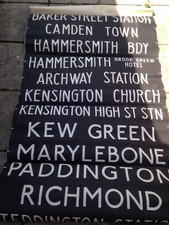 BAKER STREET STATION
CAMDEN TOWN
HAMMERSMITH BDY
HAMMERSMITH BROOK GREEN HOTEL
ARCHWAY STATION
KENSINGTON CHURCH
KENSINGTON HIGH ST STN
KEW GREEN
MARYLEBONE
PADDINGTON
RICHMOND
TEDDINGTON STATION